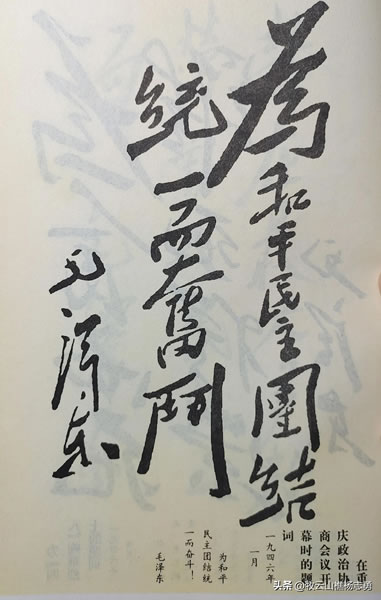 為和平民主團結
統一而奮鬥
毛澤东
在重
庆政治协
商会议开
幕时的题
词
一九四六年
一月
为和平
民主团结统
一而奋斗！
毛泽东
头条 @牧云山樵杨志勇